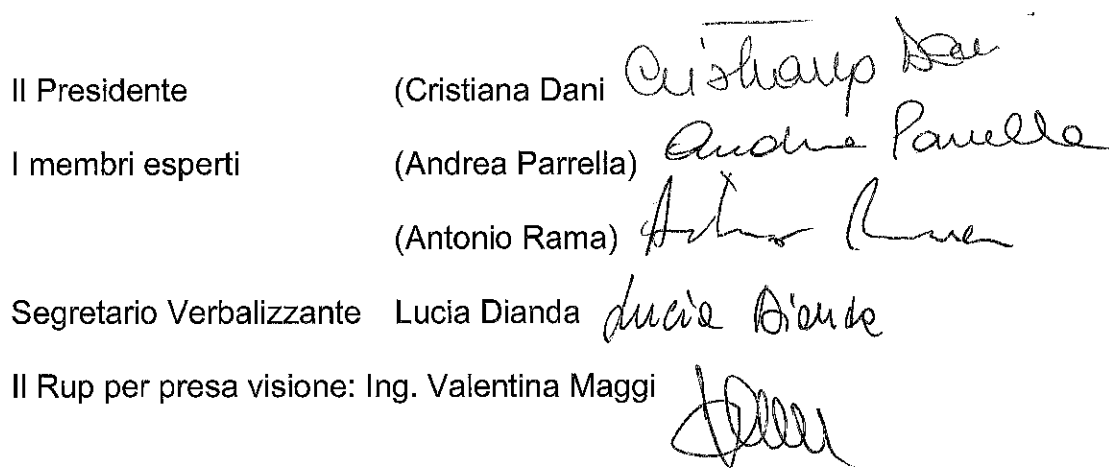 Il Presidente (Cristiana Dani Cristiana Dani
I membri esperti (Andrea Parrella) Andrea Parrella
(Antonio Rama) Antonio Rama
Segretario Verbalizzante Lucia Dianda Lucia Dianda
Il Rup per presa visione: Ing. Valentina Maggi